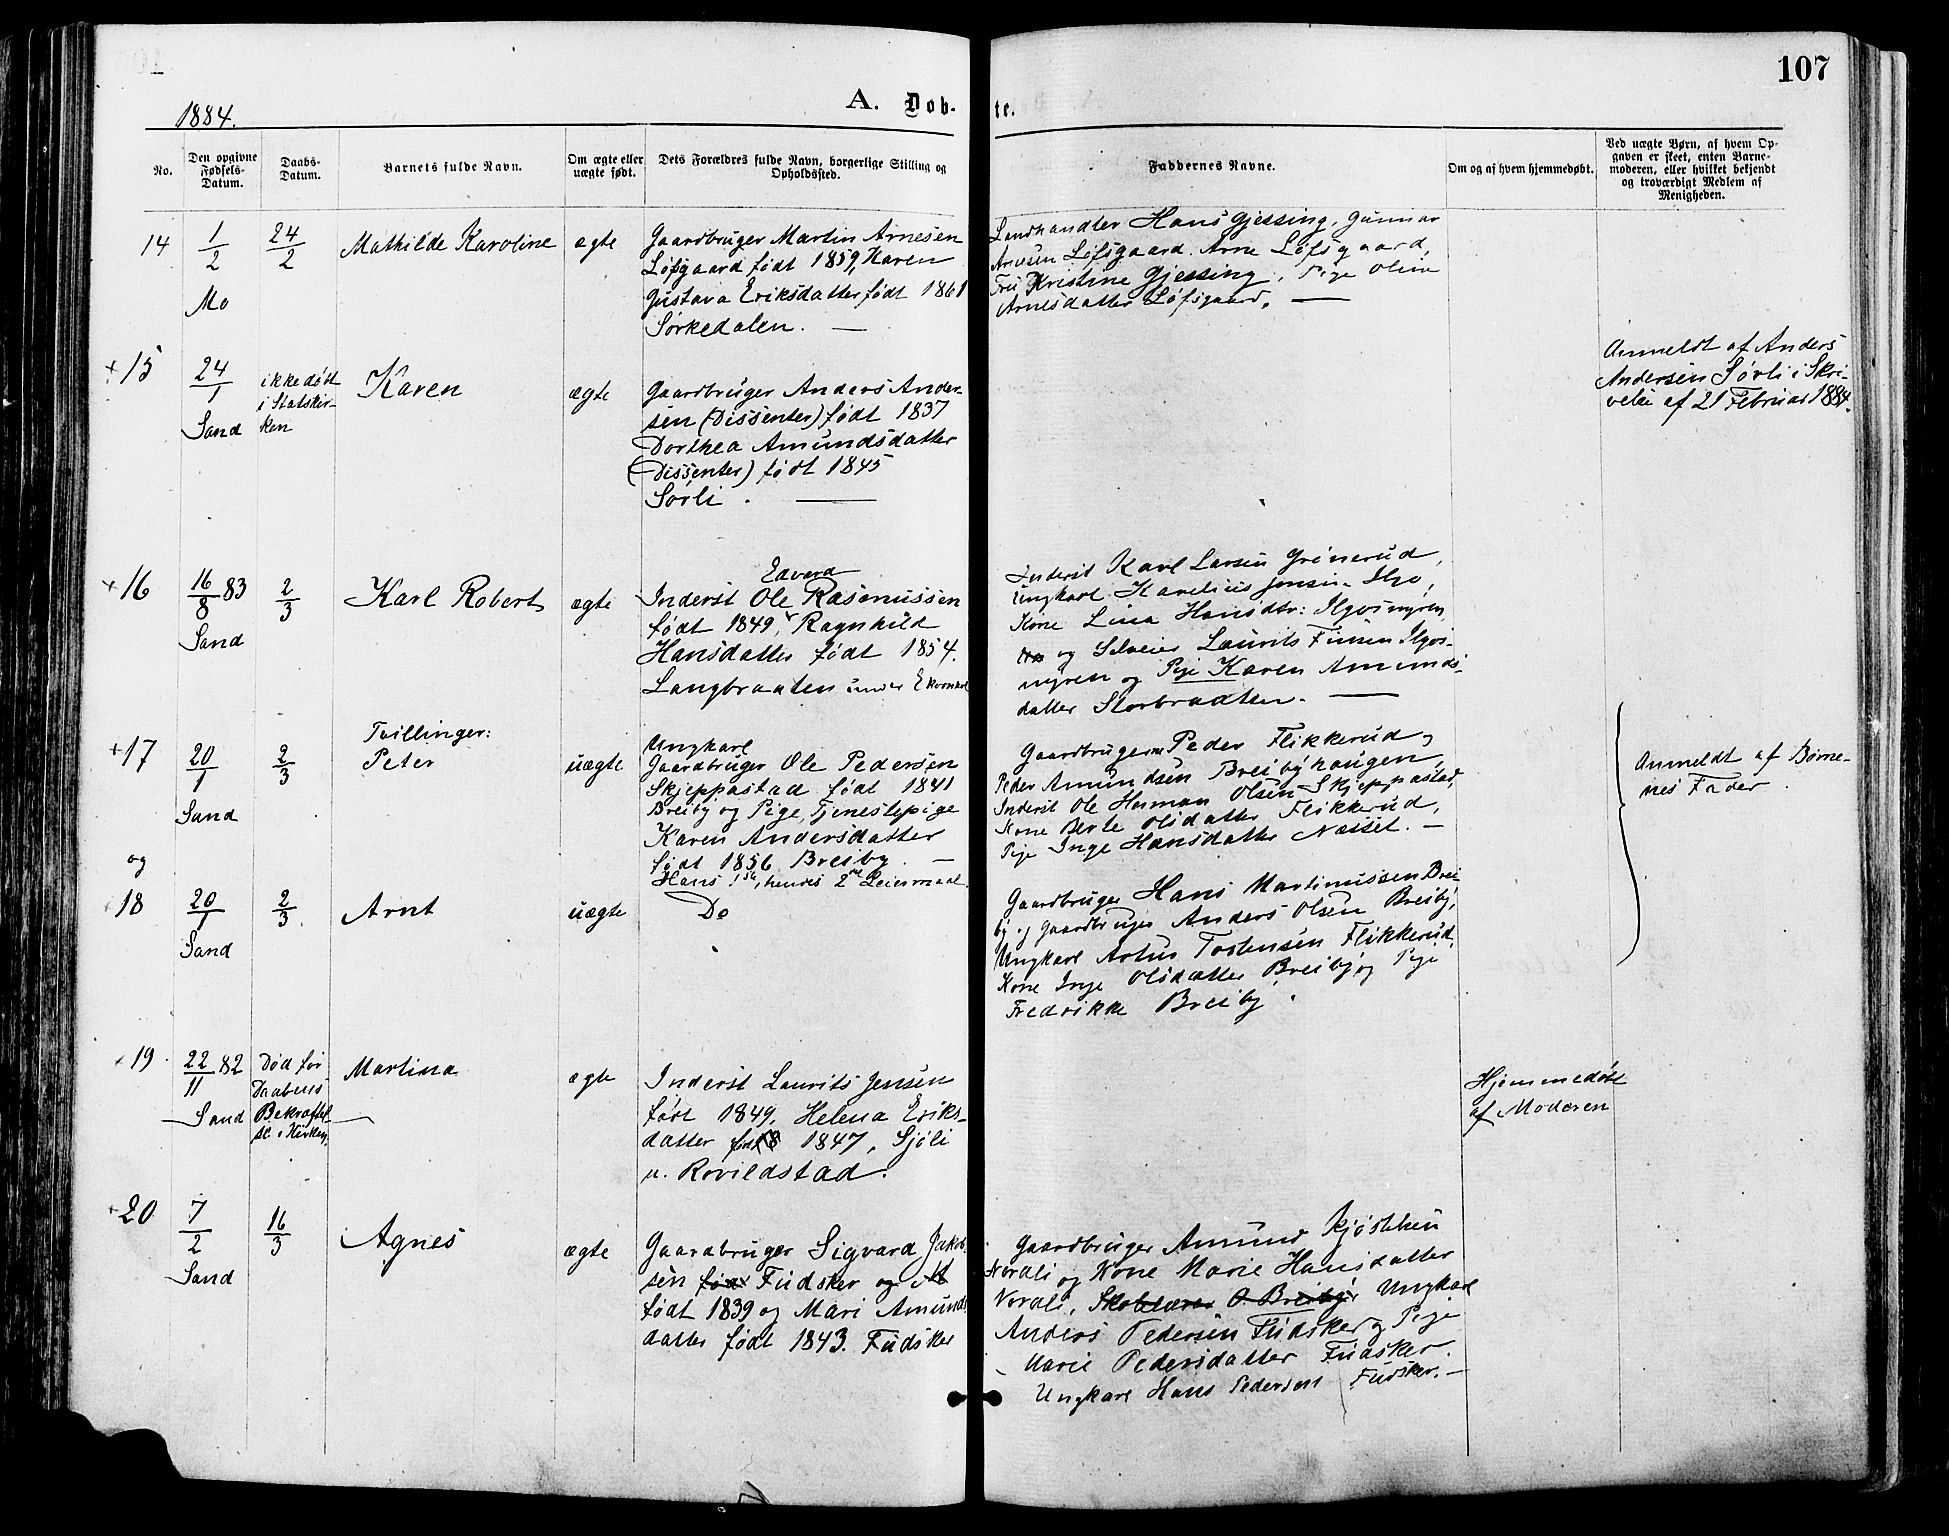 107
1884.
A. Døb-
te.
No.
Den opgivne
Fødsels-
Datum.
Daabs-
Datum.
Barnets fulde Navn.
Om ægte eller
uægte født.
Dets Forældres fulde Navn, borgerlige Stilling og
Opholdssted.
Faddernes Navne.
Om og af hvem hjemmedøbt.
Ved uægte Børn, af hvem Op-
gaven er skeet, enten Barne-
moderen, eller hvilket bekjendt
og troværdigt Medlem af
Menigheden.
14
1/2
Mo
24/2
Mathilde Karoline
ægte
Gaardbruger Martin Arnesen
Løfsgaard født 1859, Karen
Gustava Eriksdatter født 1861
Sørkedalen. —
Landhandler Hans Gjessing, Gunnar
Arnesen Løfsgaard, Arne Løfsgaard,
Fru Kristine Gjessing, Pige Oline
Arnesdatter Løfsgaard. —
+15
24/1
Sand
ikke døbt
i Statskir-
ken
Karen
ægte
Gaardbruger Anders Ander-
sen (Dissenter) født 1837
Dorthea Amundsdatter
(Dissenter) født 1845
Sørli. —
Anmeldt af Anders
Andersen Sørli i Skri-
velse af 21 Februar 1884.
+16
16/8 83
Sand
2/3
Karl Robert
ægte
Edvard
Inderst Ole Rasmussen
født 1849, Ragnhild
Hansdatter født 1854.
Langbraaten under
Inderst Karl Larsen Grinerud,
Ungkarl Karelius Jensen Ilgo,
Kone Lina Hansdtr: Ilgosmyren,
og Selveier Laurits Finsen Ilgos-
myren og Pige Karen Amunds-
datter Storbraaten. —
+17
20/1
Sand
2/3
Tvillinger:
Peter
uægte
Ungkarl
Gaardbruger Ole Pedersen
Skjeppastad født 1841
Breiby og Pige, Tjenestepige
Karen Andersdatter
født 1856 Breiby. —
Hans 1ste, hendes 2det Leiermaal.
Gaardbrugerne Peder Flikkerud og
Peder Amundsen Breibyhaugen,
Inderst Ole Herman Olsen Skjeppastad,
Kone Berte Olsdatter Flikkerud,
Pige Inge Hansdatter Næsset. —
Anmeldt af Børne-
nes Fader.
og
18
20/1
Sand
2/3.
Arnt
uægte
Do
Gaardbruger Hans Martinussen Brei-
by og Gaardbruger Anders Olsen Breiby,
Ungkarl Tostensen Flikkerud,
Kone Inge Olsdatter Breiby og Pige
Fredrikke Breiby.
19
22/11 82
Sand
Død før
Daabens
Bekræftel-
se i Kirken.
Martina
ægte
Inderst Laurits Jensen
født 1849, Helena Eriks-
datter født 1847, Sjøli
u. Rovildstad.
Hjemmedøbt
af Moderen
+20
7/2
Sand
16/3
Agnes
ægte
Gaardbruger Sigvard Jakob-
sen født Fudsker og M
født 1839 og Mari Amunds-
datter født 1843. Fudsker
Gaardbruger Amund Kjøstelsen
Nordli og Kone Marie Hansdatter
Nordli, Skolelærer O. Breiby, Ungkarl
Anders Pedersen Fudsker og Pige
Marie Pedersdatter Fudsker.
Ungkarl Hans Pedersen Fudsker. —